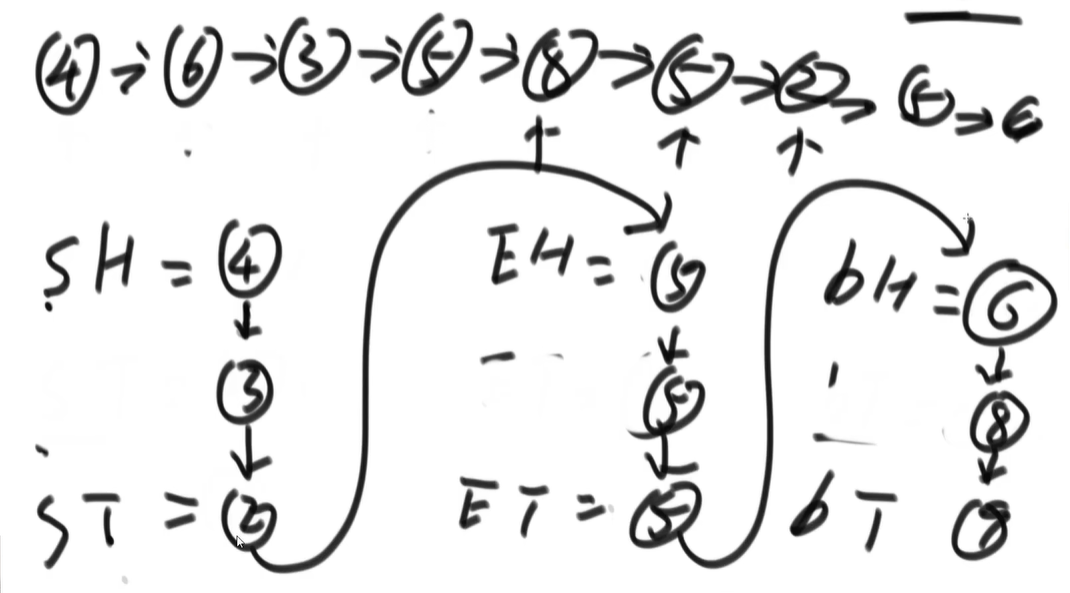 4 → 6 → 3 → 5 → 8 → 5 → 2 → 5 → 6
SH = 4
↓
3
↓
ST = 2
EH = 5
↓
5
↓
ET = 5
bH = 6
↓
8
↓
bT 8